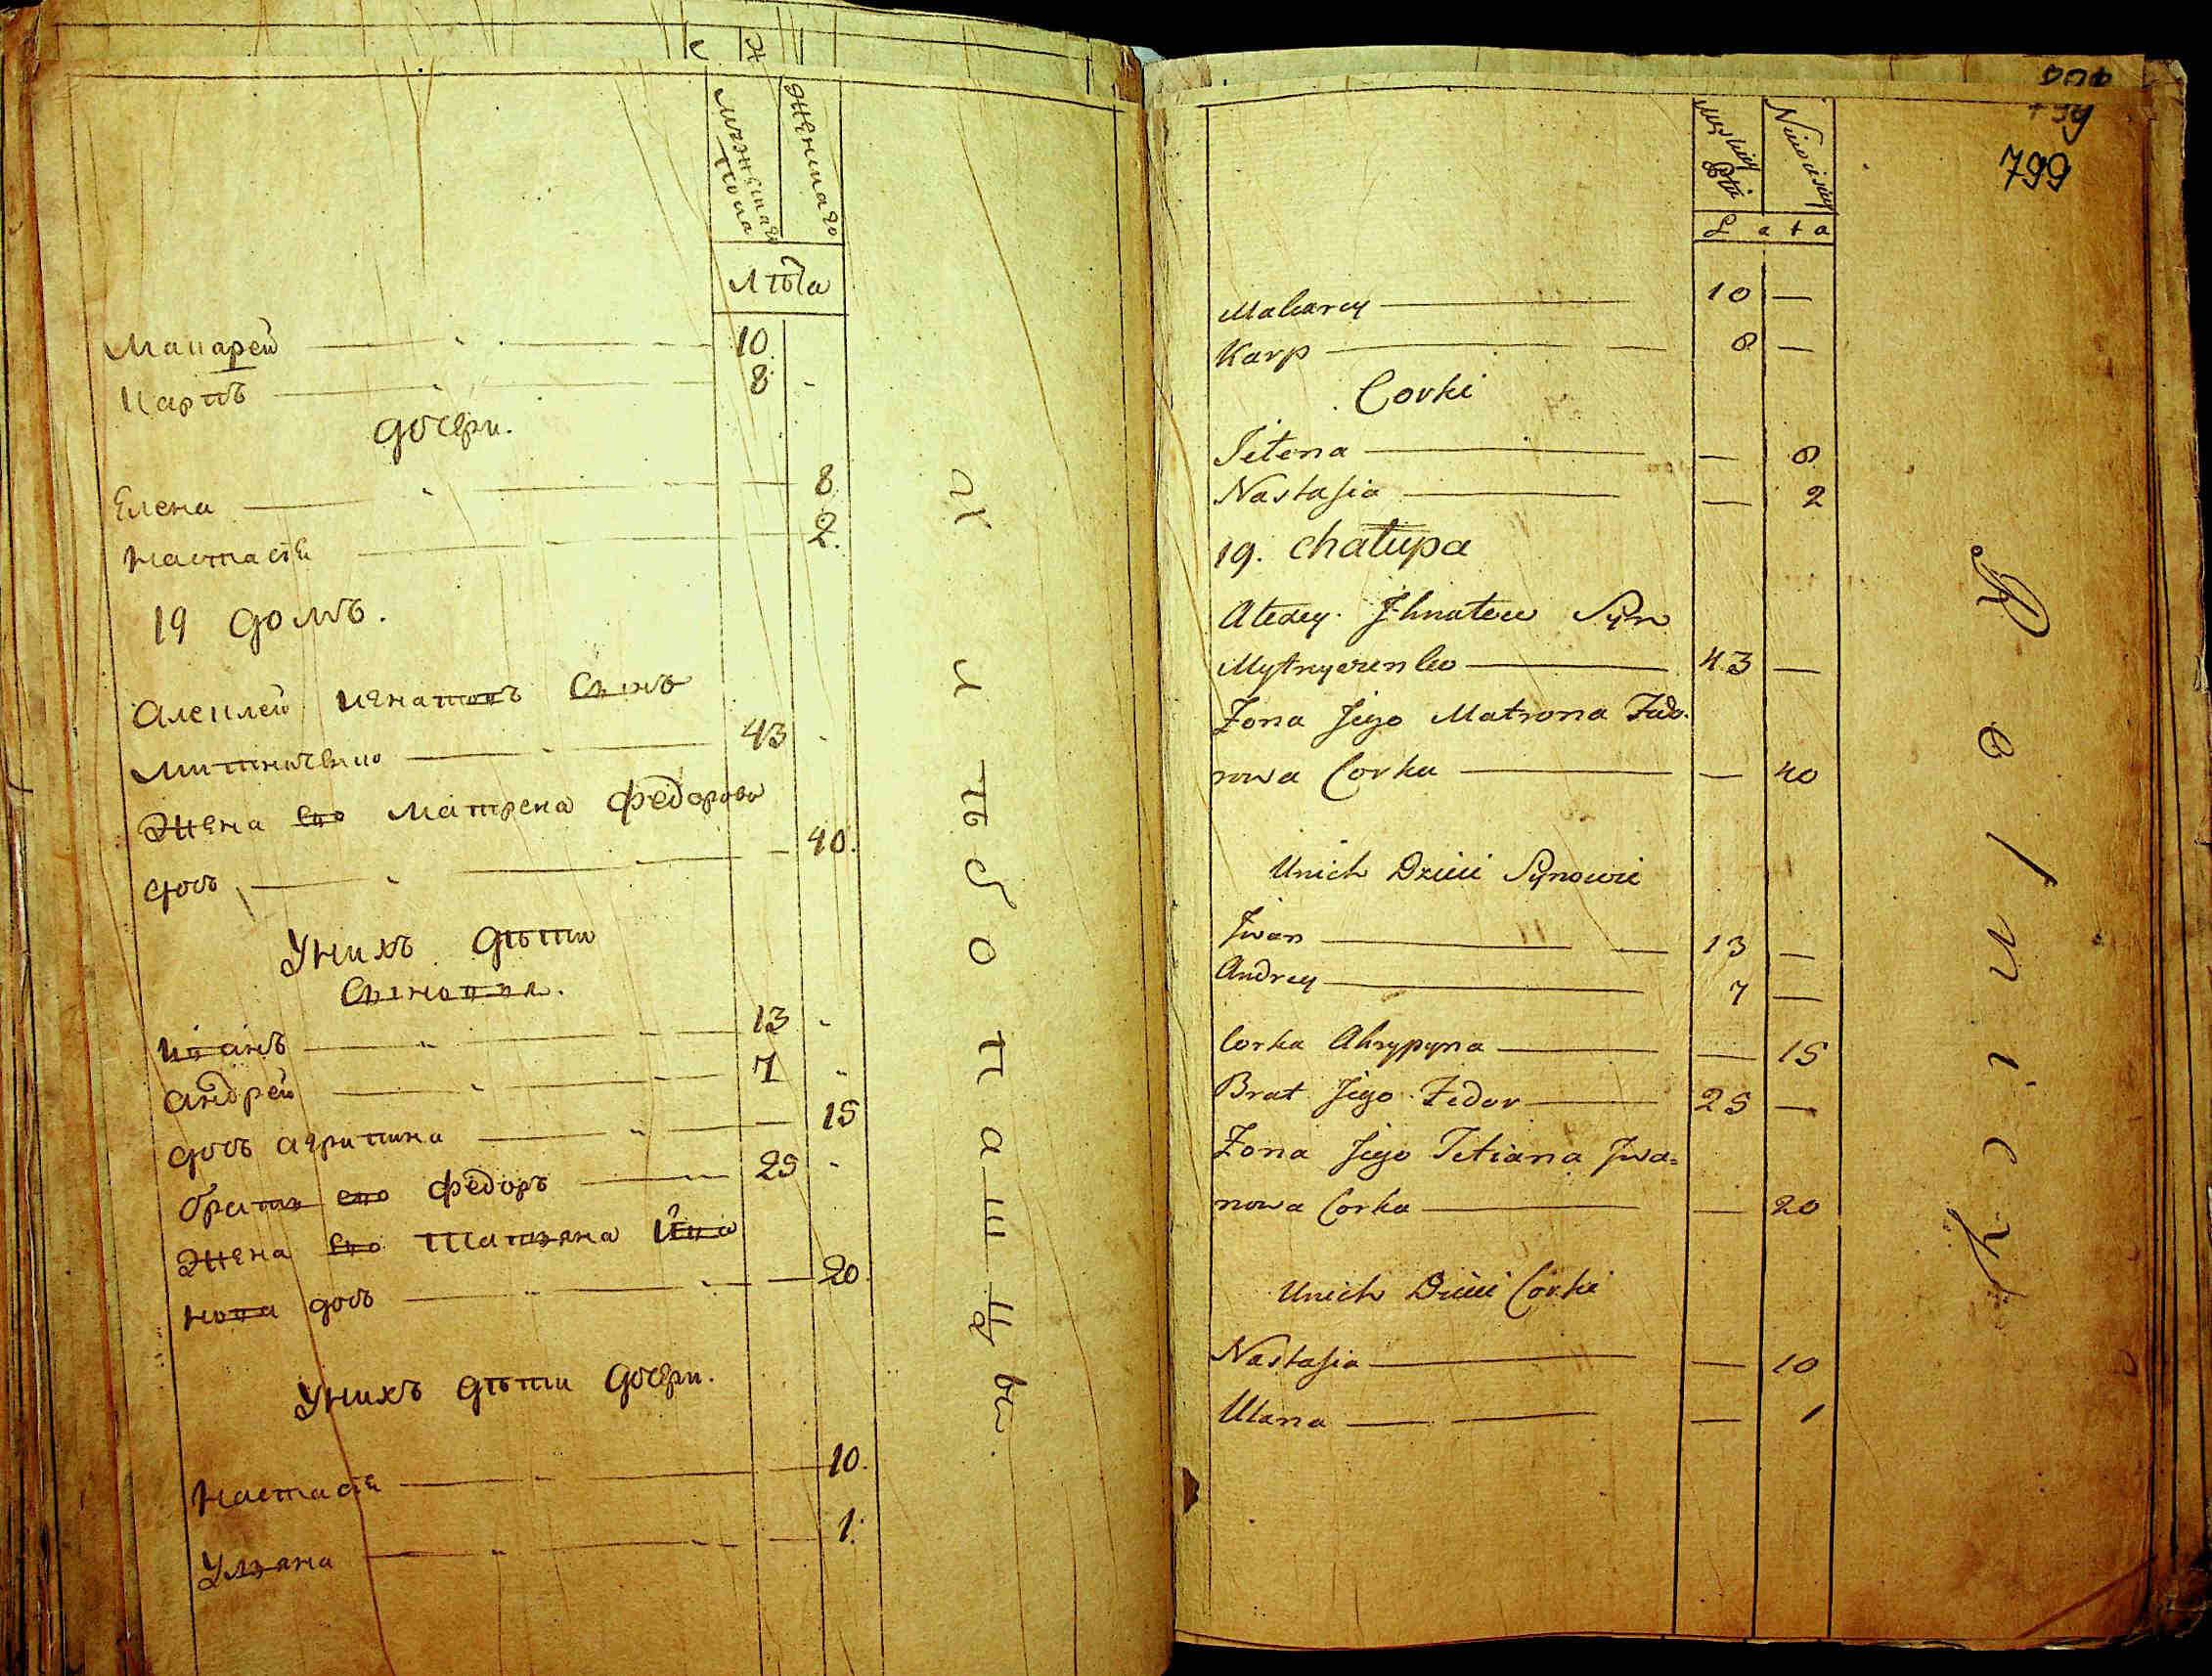 мужескаго пола
женскаго
лѣта
Макарей 10
Карпъ 8
дочери.
Елена 8
Настасія 2.
19 домъ.
Алексей Игнатовъ Сынъ
Митниченко 43
Жена его Матрена Федорова
дочь 40.
Унихъ дѣти
Сыновья.
Иванъ 13
Андрей 7
дочь Агрипина 15
братъ его Федоръ 25
Жена его Татьяна Ива
нова дочь 20.
Унихъ дѣти дочери.
Настасія 10.
Ульяна 1.
799
Męskiey Płci
Niewieściey
Lata
Makarey 10 —
Karp 8 —
Corki
Jelena — 8
Nastasia — 2
19. Chałupa
Alexey Jhnatow Syn
Mytnyczenko 43 —
Żona Jego Matrona Fedo.
rowa Corka — 40
Unich Dzieci Synowie
Jwan 13 —
Andrey 7 —
Corka Ahrypyna — 15
Brat Jego Fedor 25 —
Żona Jego Tetiana Jwa=
nowa Corka — 20
Unich Dzieci Corki
Nastasia — 10
Ulana — 1